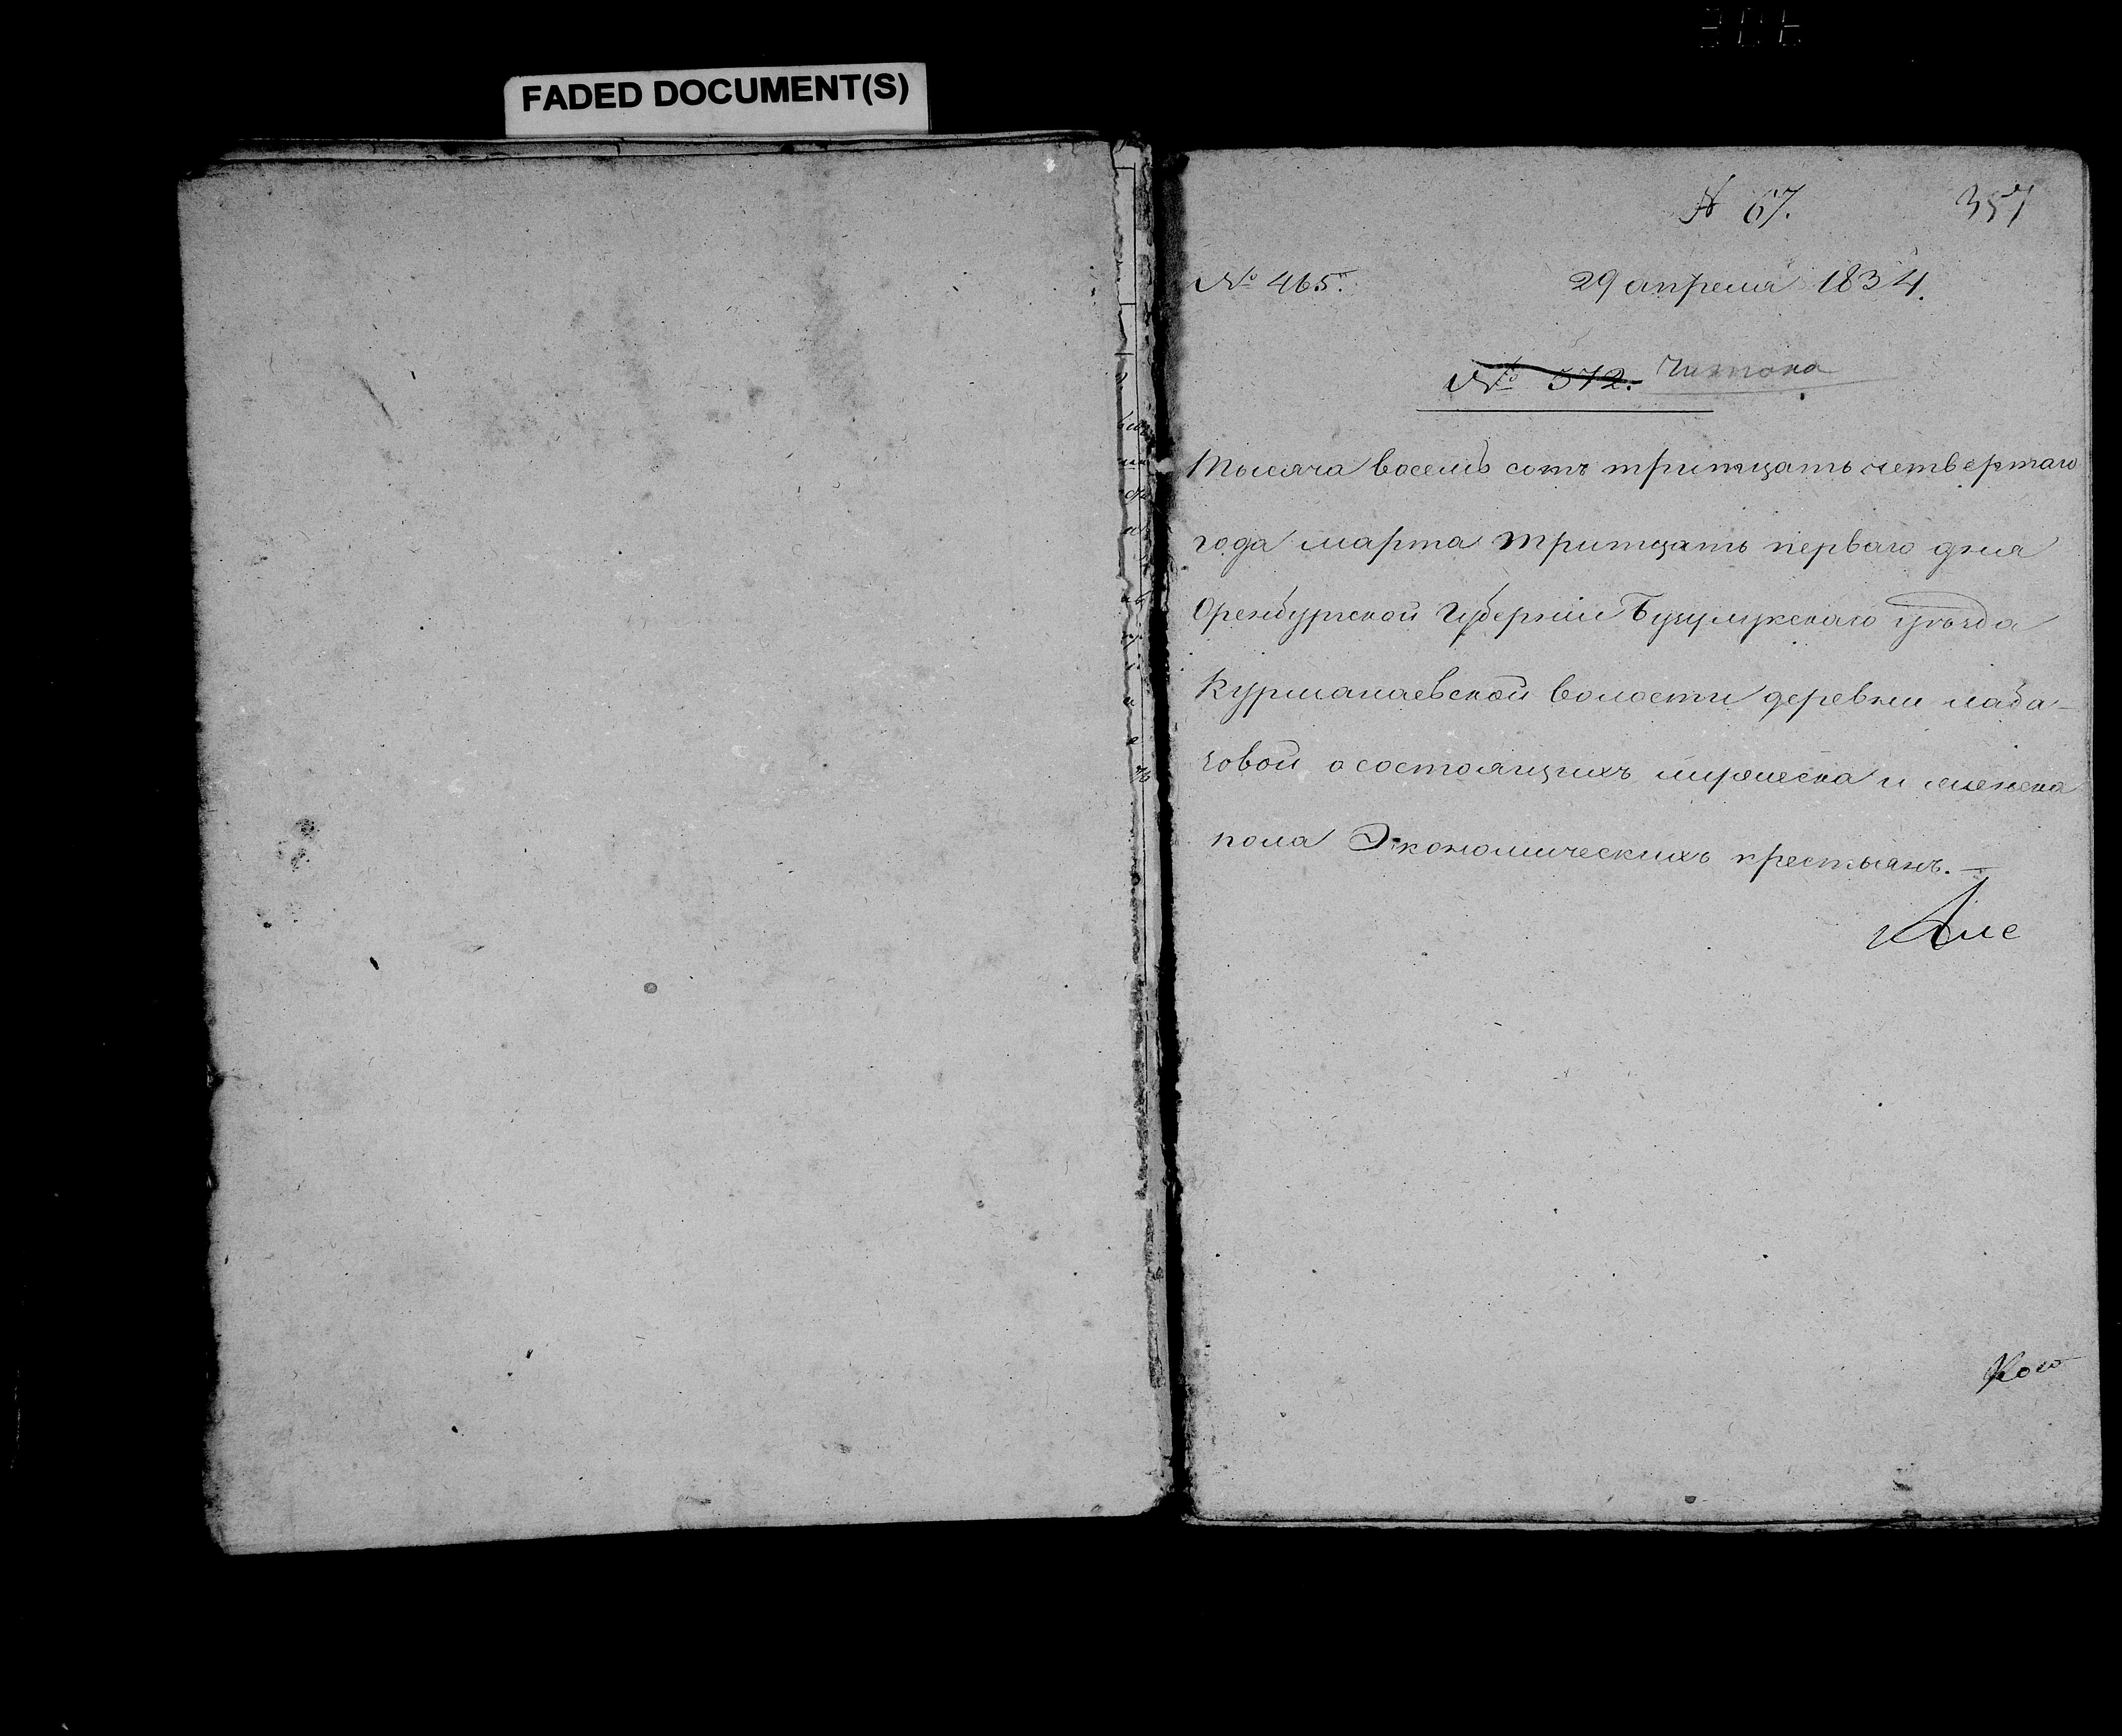 FADED DOCUMENT(S)
№ 67. 357
№ 465. 29 апреля 1834.
№ 572. Читана
Тысяча восемь сотъ тритцать четвертаго
года марта тритцать перваго дня
Оренбургской Губернии Бузулукскаго уѣзда
Курманаевской волости деревни лаба-
зовой о состоящихъ мужеска и женска
пола Экономическихъ крестьянъ. —
Але
Ко